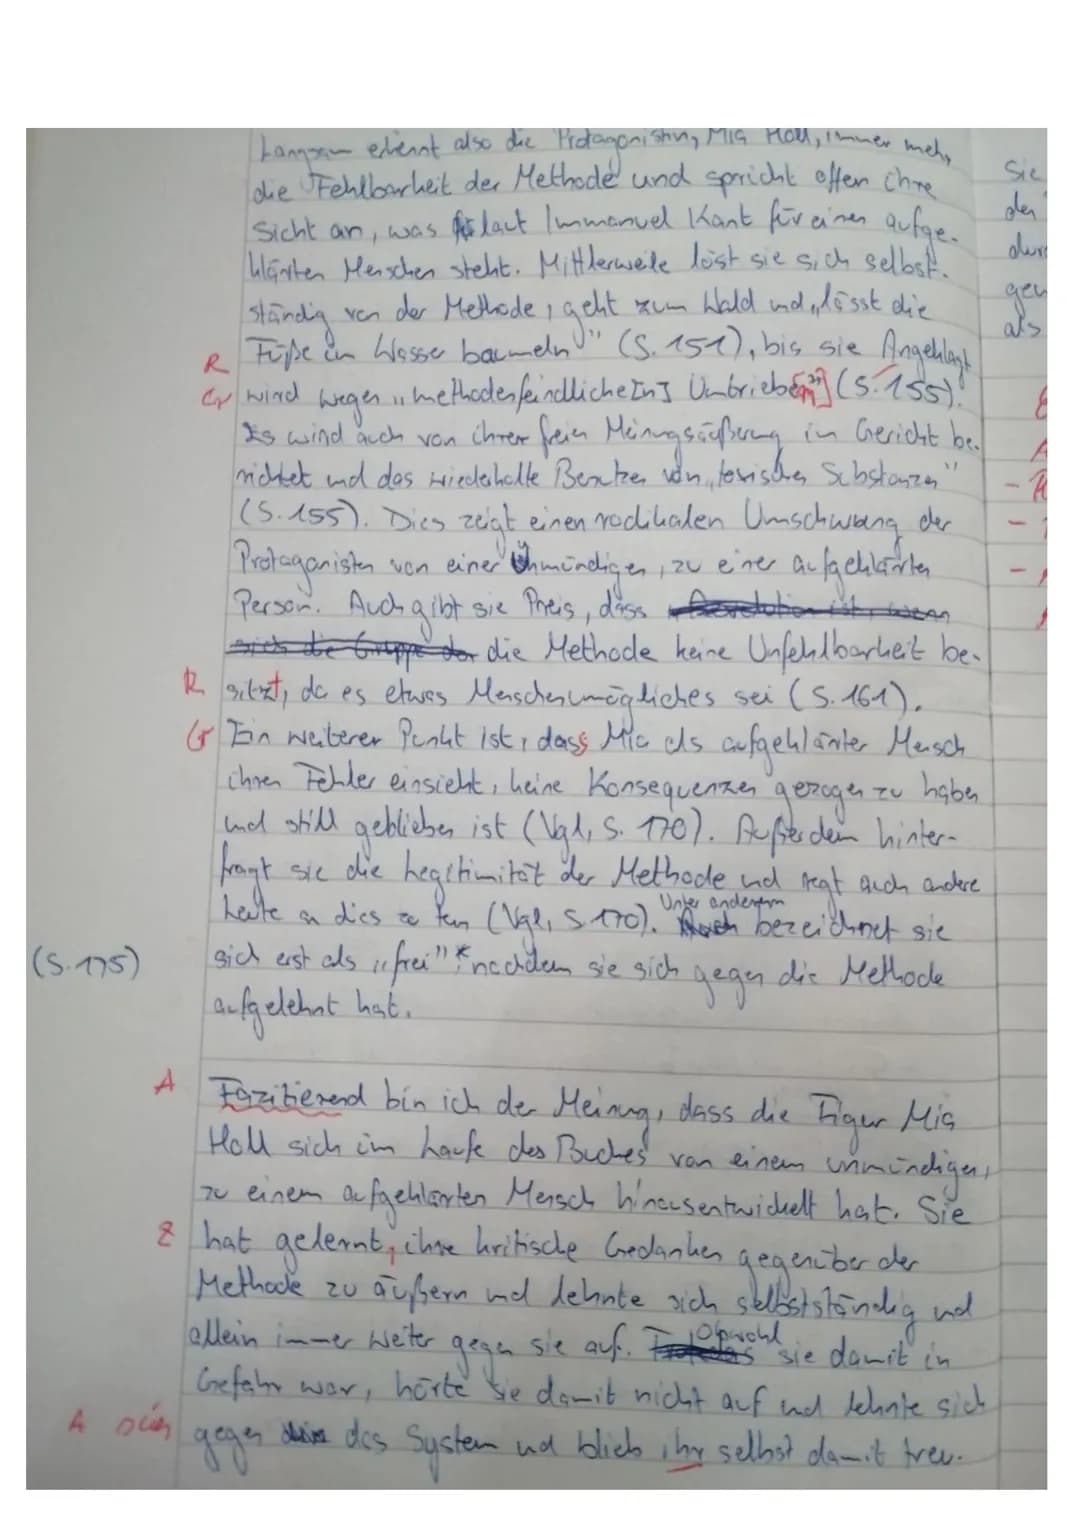 Langsam erkennt also die Protagonistin, Mia Holl, immer mehr,
die Fehlbarkeit der Methode und spricht offen ihre
Sicht an, was laut Immanuel Kant für einen aufge-
klärten Menschen steht. Mittlerweile löst sie sich selbst-
ständig von der Methode, geht zum Wald und „lässt die
R Füße im Wasser baumeln" (S. 151), bis sie Angeklagt
Gr wird wegen „methodenfeindliche[n] Umtriebe[n]" (S. 155).
Es wird auch von ihrer freien Meinungsäußerung im Gericht be-
richtet und das wiederholte Besitzen von „toxischen Substanzen"
(S. 155). Dies zeigt einen radikalen Umschwung der
Protagonisten von einer Unmündigen, zu einer aufgeklärten
Person. Auch gibt sie Preis, dass Revolution ist, wenn
sich die Gruppe der die Methode keine Unfehlbarkeit be-
R sitzt, da es etwas Menschenunmögliches sei (S. 161).
Gr Ein weiterer Punkt ist, dass Mia als aufgeklärter Mensch
ihren Fehler einsieht, keine Konsequenzen gezogen zu haben
und still geblieben ist (Vgl. S. 170). Außerdem hinter-
fragt sie die Legitimität der Methode und regt auch andere
Leute an dies zu tun (Vgl. S. 170). Auch Unter anderem bezeichnet sie
sich erst als „frei"* nachdem sie sich gegen die Methode
(S. 175)
aufgelehnt hat.
A Fazitierend bin ich der Meinung, dass die Figur Mia
Holl sich im Laufe des Buches von einem unmündigen,
zu einem aufgeklärten Mensch hinausentwickelt hat. Sie
Z hat gelernt, ihre kritische Gedanken gegenüber der
Methode zu äußern und lehnte sich selbstständig und
allein immer weiter gegen sie auf. Obwohl sie damit in
Gefahr war, hörte sie damit nicht auf und lehnte sich
A sich gegen das System und blieb ihr selbst damit treu.
Sie
der
dur
gen
als